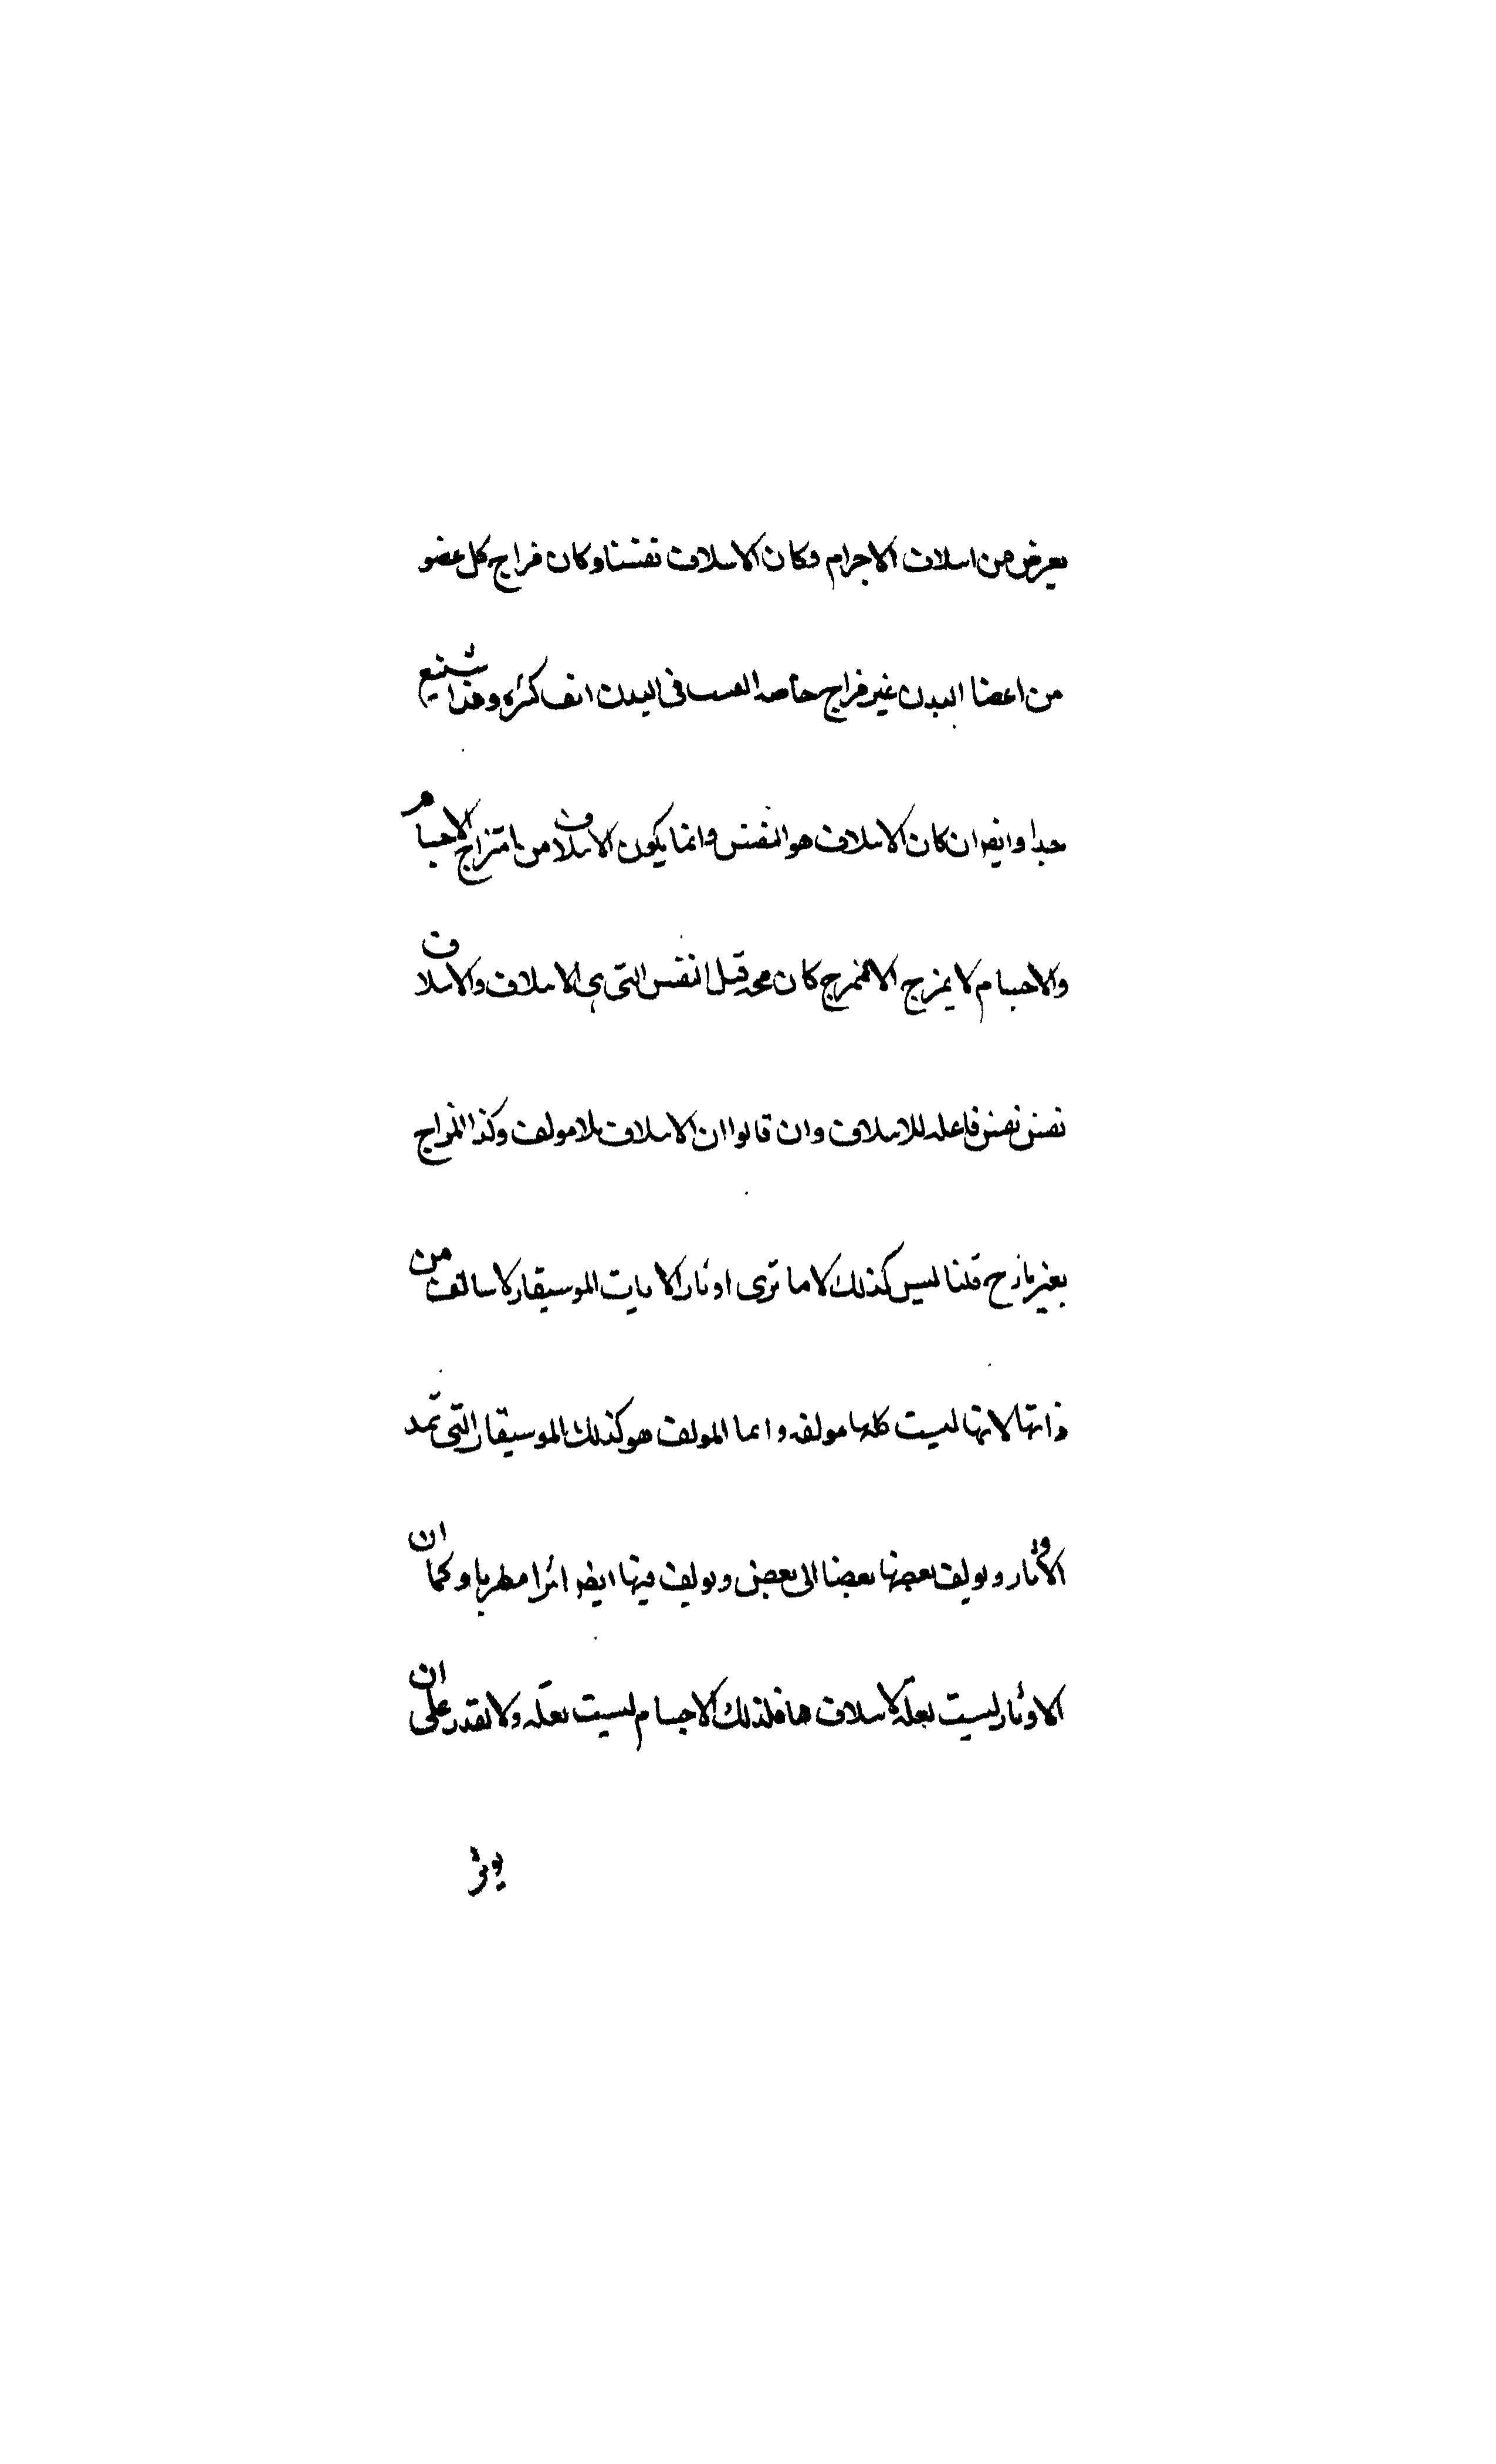 يعرض من ايتلاف الاجرام وكان الايتلاف نفسنا وكان مزاج كل عضو
من اعضا البدن غير مزاج صاحبه الفيت فى البدن انفس كثيره وهذا شنيع
جدا وايضا ان كان الايتلاف هو النفس وانما يكون الايتلاف من امتزاج الاجسام
والاجسام لا يمزج الا بممزج كان محه قبل النفس التى هى الايتلاف والايتلاف
نفس نفس فاعله للايتلاف وان قالوا ان الايتلاف بلا مولف وكذا المزاج
بغير مازج قلنا ليس كذلك لاما ترى اوتار الايات الموسيقار لا ياتلف من
ذاتها لانها ليست كلها مولفه وانما المولف هو كذلك الموسيقار التى تمد
الاوتار ويولف بعضها بعضا الى بعض ويولف فيها ايضا اثرا مطربا وكما ان
الاوتار ليست بعلة لايتلافها فلذلك الاجسام ليست بعله ولا تقدر على ان
يوثر